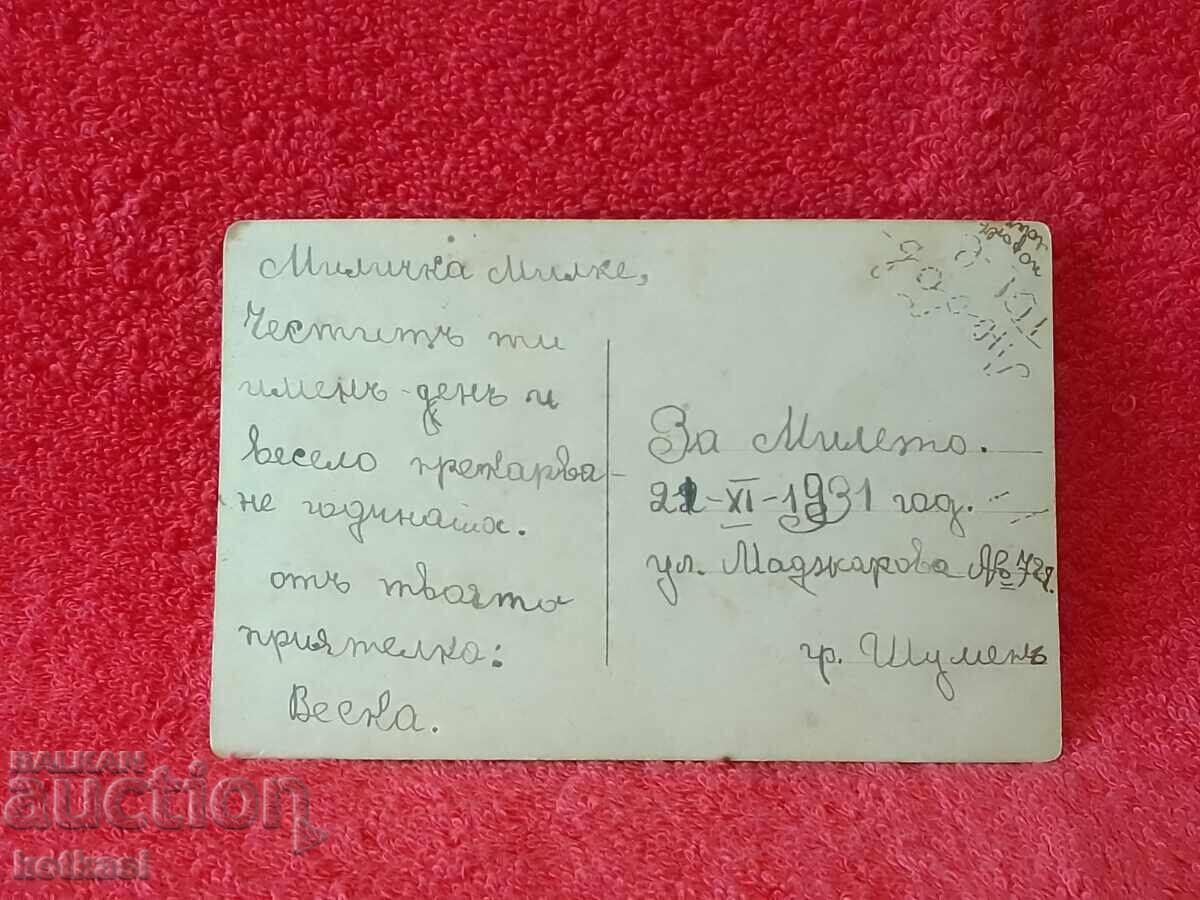 Миличка Милке,
Честитъ ти
имень-день и
весело прекарва-
не годината.
отъ твоята
приятелка:
Веска.
За Милето.
21-XI-1931 год.
ул. Маджарова №
гр. Шуменъ
BALKAN
auction
kotkasi